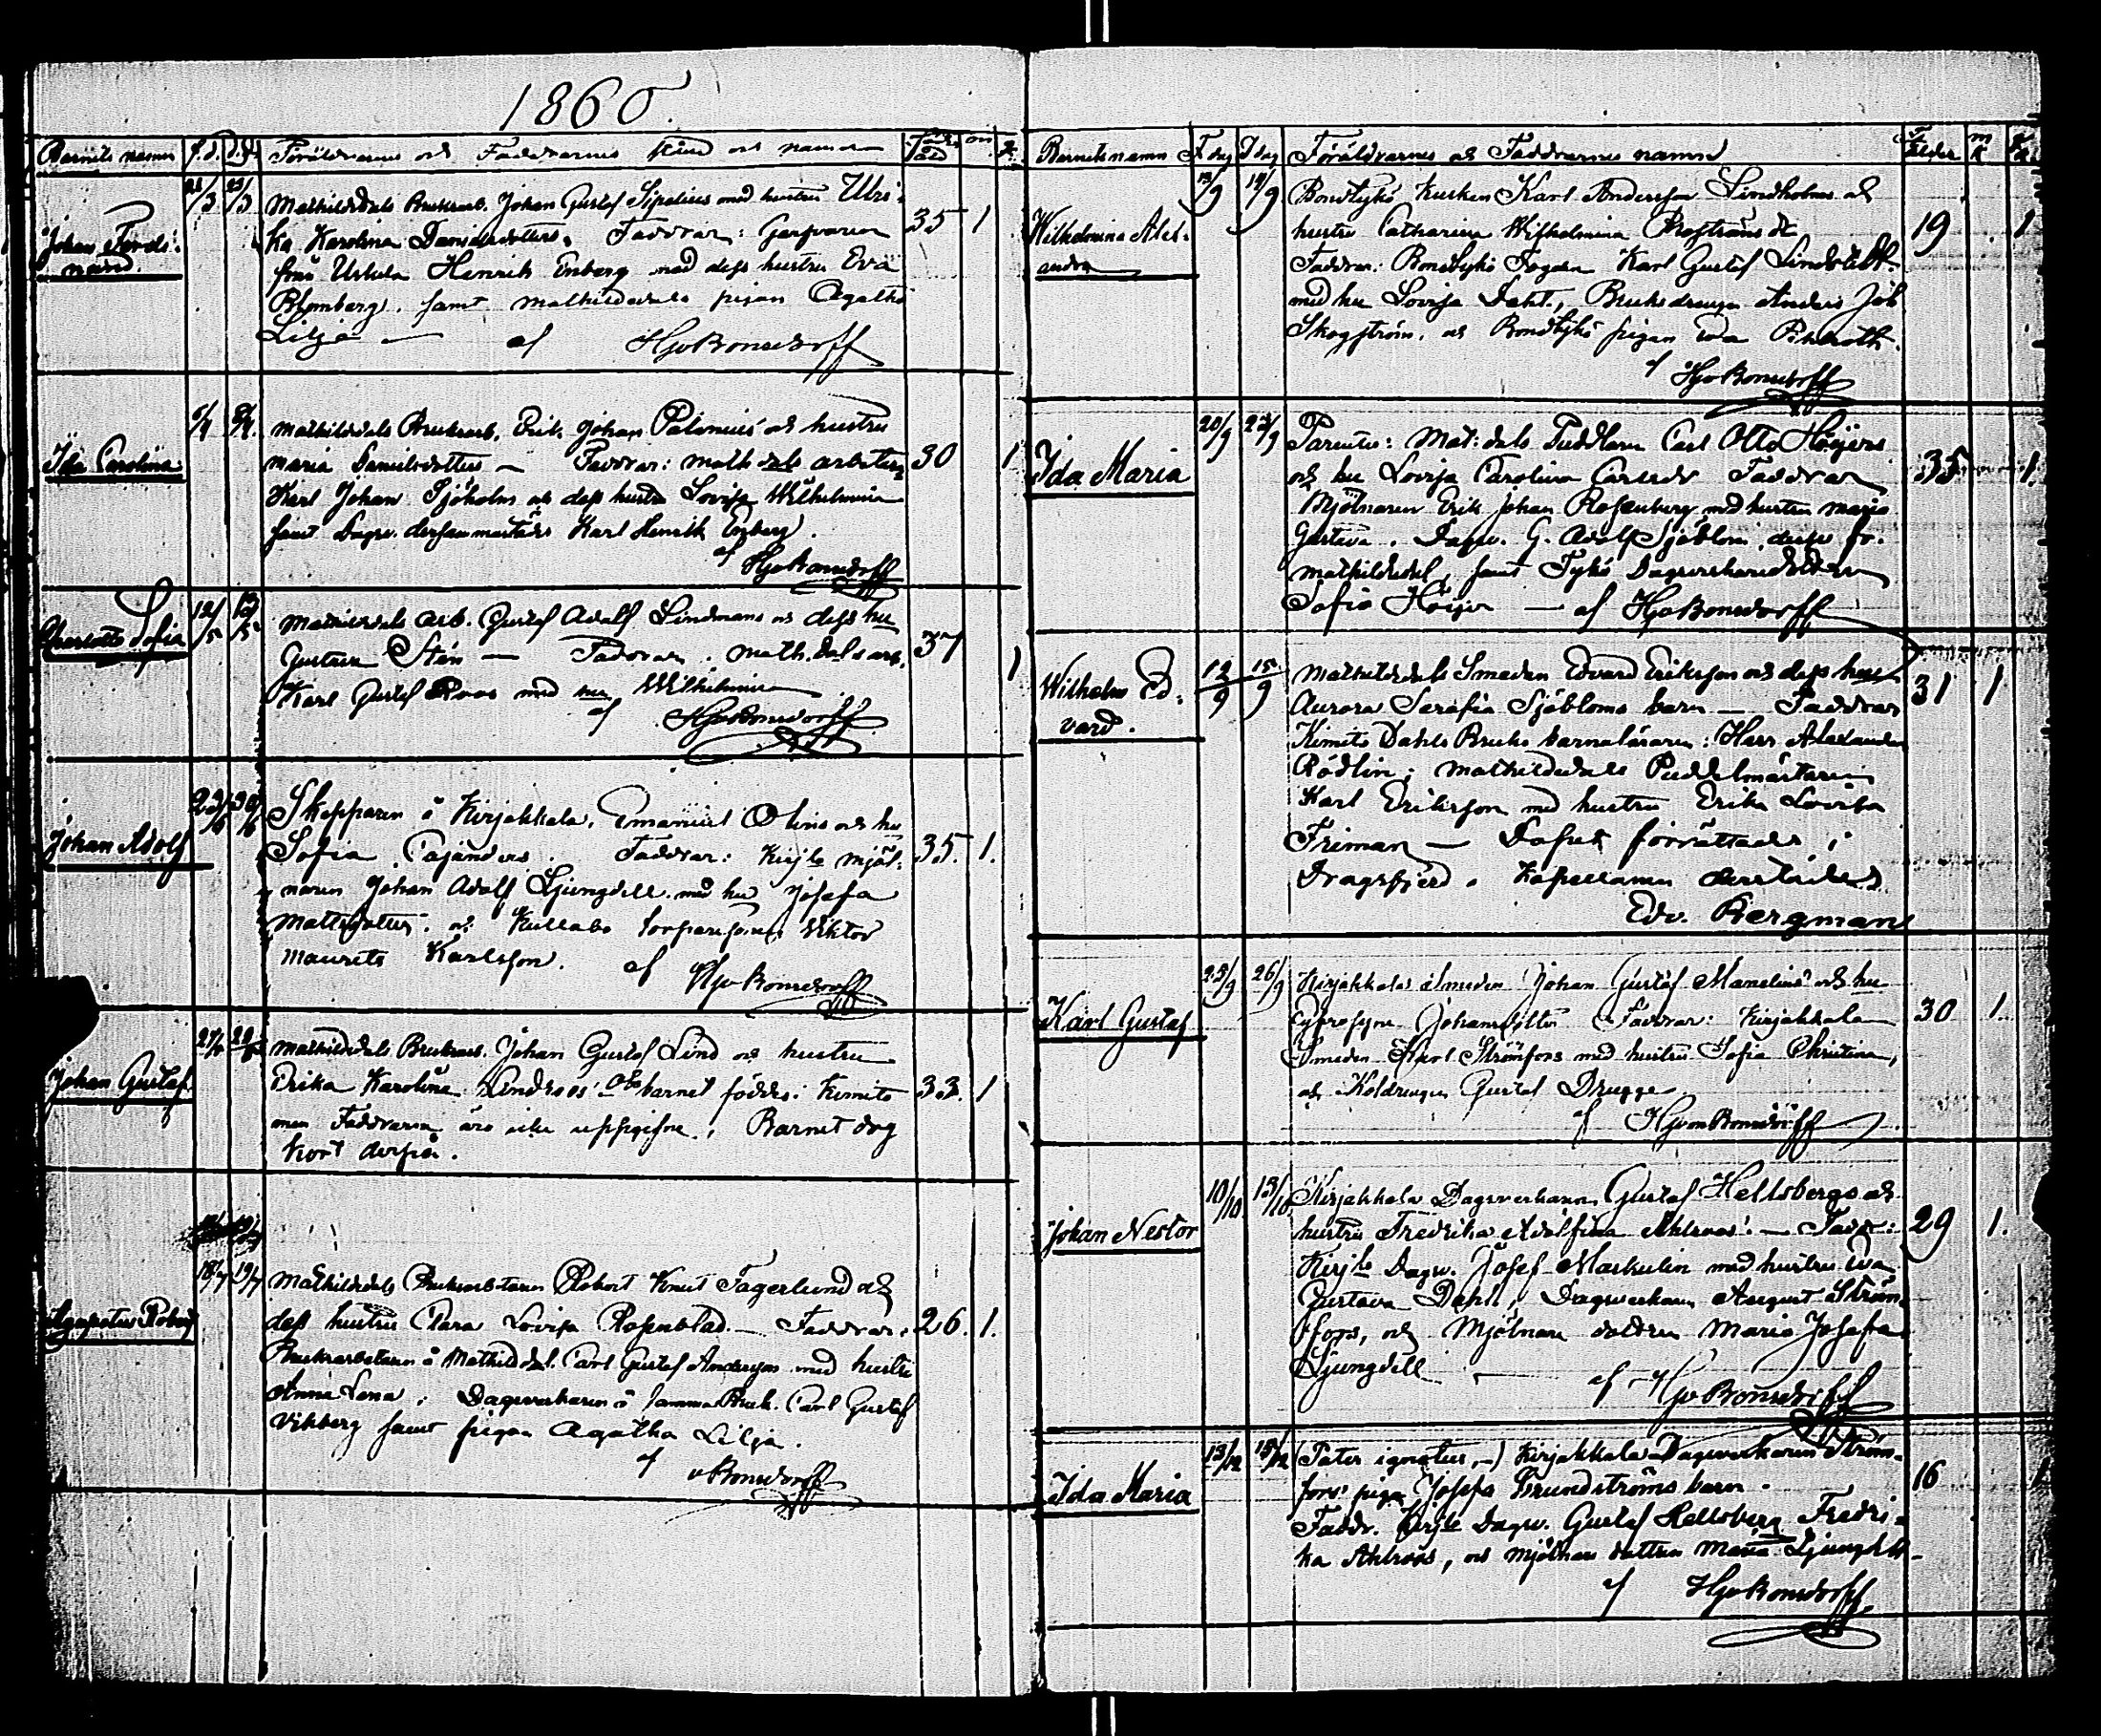 1860.
Barnets namn f.d. d.d. Föräldrarnes och Faddrarnes stånd och namn
Johan Ferdi-
nand.
23/3 25/3 Mathildedals Bruksarb. Johan Gustaf Sipelius med hustru Ulri-
ka Karolina Danielsdotters. Faddrar: Garfvaren 35 1
från Uskela Henrik Enberg med dess hustru Eva
Blomberg. samt Mathildedals pigan Agatha
Lilja — af HJvBonsdorff
Ida Carolina
6/4 8/4 Mathildedals Bruksarb. Erik Johan Palenius och hustru
Maria Samuelsdotters — Faddrar: Mathdals arbetare 30 1
Karl Johan Sjöholm och dess hustru Lovisa Wilhelmina
samt Dagsv. dersammastädes Karl Henrik Enberg.
af HJvBonsdorff
Charlotta Sofia
12/5 13/5 Mathildedals arb. Gustaf Adolf Lindmans och dess hu
Gustava Stén — Faddrar: Math.dals arb. 37 1
Karl Gustaf Roos med hu Wilhelmina
af HJvBonsdorff
Johan Adolf
23/6 30/6 Skepparen å Kirjakkala, Emanuel Olins och hu
Sofia Cajanders. Faddrar: Kirjla mjöl- 35. 1.
naren Johan Adolf Ljungdell med hu Josefa
Mattsdotter. och Kullabo torparesonen Viktor
Maurits Karlsson. af HJvBonsdorff
Johan Gustaf
Mathildedals Bruksarb. Johan Gustaf Lind och hustru
Erika Karolina Lindroos' barnet föddes i Kimito 33. 1
men Faddrarna äro icke uppgifne. Barnet dog
kort derpå.
Agapetus Robert
18/7 19/7 Mathildedals Bruksarbetaren Robert Knut Fagerlund och
dess hustru Clara Lovisa Rosenblad. — Faddrar: 26. 1.
Bruksarbetaren å Mathildedal. Carl Gustaf Andersson med hustru
Anna Lena; Dagsverkaren å samma Bruk. Carl Gustaf
Vikberg samt pigan Agatha Lilja.
af vBonsdorff
Barnets namn F dag D dag Föräldrarnes och Faddrarnes namn F ålder m k
Wilhelmina Alex-
andra
Bondtykö kusken Karl Andersson Lindholms och
hustru Catharina Wilhelmina 19 1
Faddrar: Bondtykö Fogden Karl Gustaf Lindstedt
med hu Lovisa Dahl., Bruksdrengen Anders Joh
Skogström, och Bondtykö pigan Eva
af HJvBonsdorff
Ida Maria
20/9 23/9 Parentes: Mat:dals Puddlaren Carl Otto Höijers
och hu Lovisa Carolina Carlsdr Faddrar 35 1.
Mjölnaren Erik Johan Rosenberg med hustru Maria
Gustava. Dagsv. G. Adolf Sjöblom, desse fr.
Mathildedal, samt Tykö Dagsverkaredottern
Sofia Höijer — af HJvBonsdorff
Wilhelm Ed-
vard.
12/9 15/9 Mathildedals Smeden Edvard Eriksson och dess hustru
Aurora Serafia Sjöbloms barn — Faddrar 31 1
Kimito Dahls Bruks barnaläraren: Herr Alexander
Rödlin; Mathildedals Puddelmästaren
Karl Eriksson med hustru Erika Lovisa
Friman — Dopet förrättades i
Dragsfjerd. Kapellanen derstädes
Edv. Bergman
Karl Gustaf
25/9 26/9 Kirjakkala smeden Johan Gustaf Mamelins och hu
Eufrosyne Johansdotter Faddrar: Kirjakkala 30 1.
Smeden Karl Strömfors med hustru Sofia Christina,
och Koldrengen Gustaf Drugge
af HJvonBonsdorff
Johan Nestor
10/10 13/10 Kirjakkala Dagsverkaren Gustaf Hellsbergs och
hustru Fredrika Adolfina Ahlroos'. — Fadr: 29 1.
Kirjla Dagsv. Josef Maskulin med hustru Eva
Gustava Dahl, Dagsverkaren August Ström-
fors, och Mjölnare dottren Maria Josefa
Ljungdell — af HJvBonsdorff
Ida Maria
13/12 15/12 (Pater ignotus,—) Kirjakkala Dagsverkaren Ström-
fors' piga Josefa Grundströms barn. 16 1
Faddr. Kirjla Dagsv. Gustaf Hellsberg Fredri-
ka Ahlroos, och Mjölnare dottren Maria Ljungdell
af HJvBonsdorff